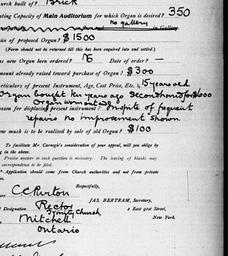 urch built of? Brick
ting Capacity of Main Auditorium for which Organ is desired? 350
no gallery
in Gallery
rice of proposed Organ? $1500
(Form should not be returned till this has been enquired into and settled.)
as new Organ been ordered? No Date of order? —
mount already raised toward purchase of Organ? $300
rticulars of present Instrument, Age, Cost Price, Etc.? 15 years old
Organ bought ten years ago Secondhand for $600
Organ worn out
eason for displacing present instrument? In spite of frequent
repairs no improvement shown
ow much is to be realised by sale of old Organ? $100
To facilitate Mr. Carnegie's consideration of your appeal, will you oblige by
ng in the above.
Precise answer to each question is necessary. The leaving of blanks may
correspondence to be disregarded.
Application should come from Church authorities and not from private
Respectfully,
JAS. BERTRAM, Secretary,
C C Purton
2 East 91st Street,
Designation Rector
New York.
Trinity Church,
Mitchell
Ontario